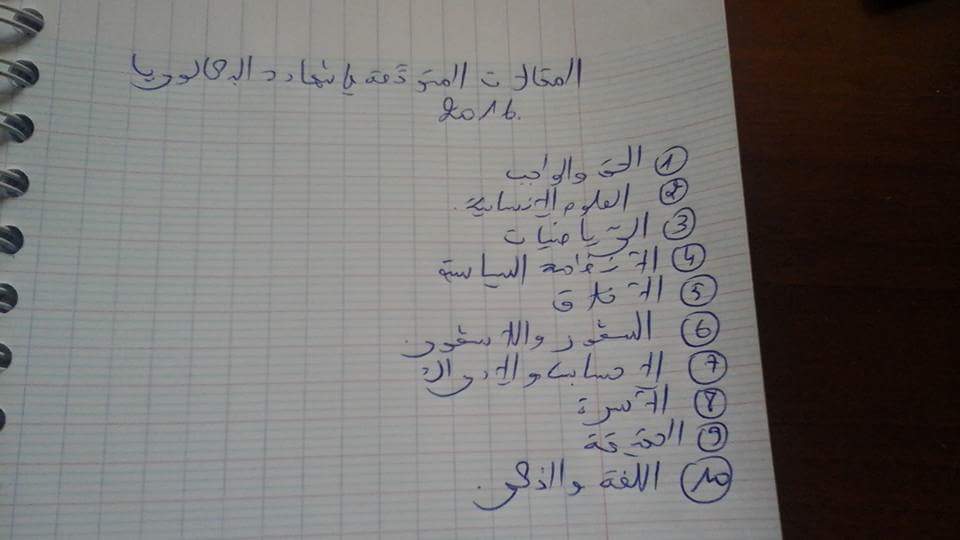 المقالات المتوقعة لإشهادة البكالوريا
2016.
① الحق والواجب
② العلوم الإنسانية.
③ الرياضيات
④ الأنظمة السياسية
⑤ الأخلاق
⑥ الشعور واللاشعور.
⑦ الإحساس والإدراك
⑧ الأسرة
⑨ الحقيقة
⑩ اللغة والفكر.